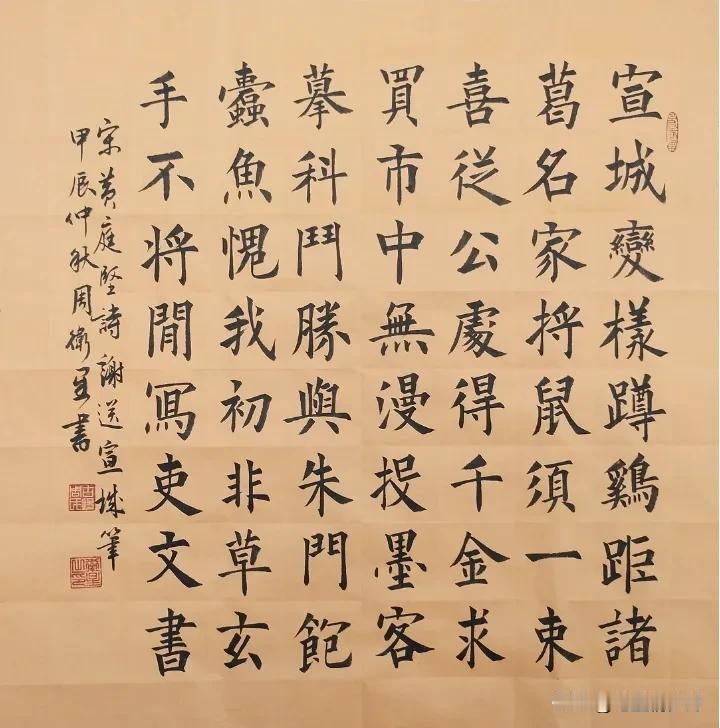 宣城變樣蹲鷄距諸
葛名家捋鼠須一束
喜從公處得千金求
買市中無漫投墨客
摹科鬥勝與朱門飽
蠹魚愧我初非草玄
手不將閒寫吏文書
宋黄庭堅詩謝送宣城筆
甲辰仲秋周衛星書